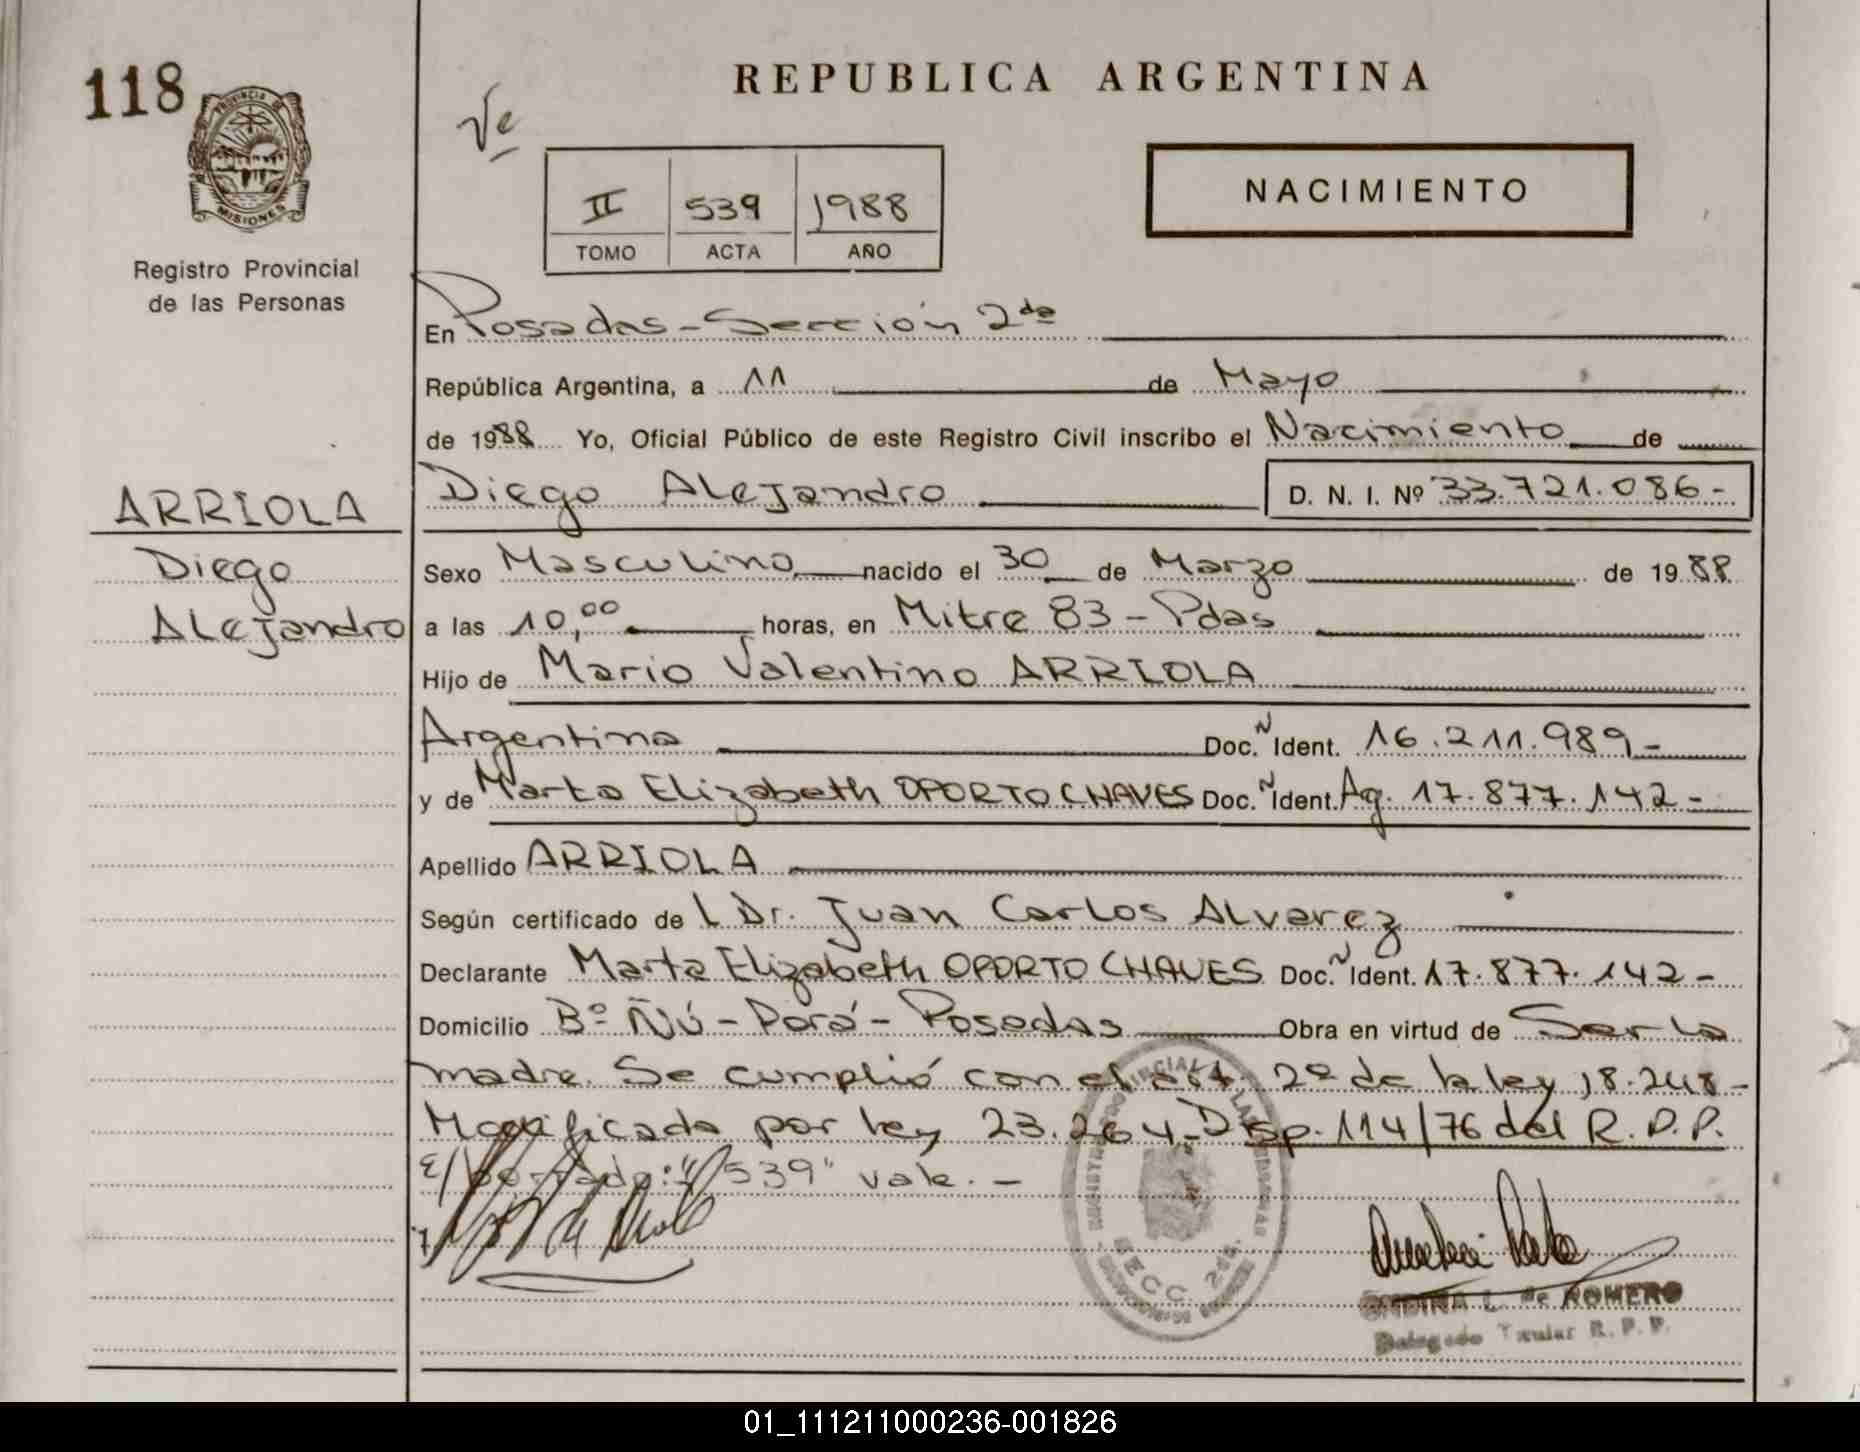 118
REPUBLICA ARGENTINA
PROVINCIA DE
MISIONES
Registro Provincial
de las Personas
II 539 1988
TOMO ACTA AÑO
NACIMIENTO
En Posadas - Sección 2da
República Argentina, a 11 de Mayo
de 1988 Yo, Oficial Público de este Registro Civil inscribo el Nacimiento de
ARRIOLA
Diego Alejandro
Diego Alejandro D. N. I. Nº 33.721.086-
Sexo Masculino nacido el 30 de Marzo de 1988
a las 10,00 horas, en Mitre 83 - Pdas
Hijo de Mario Valentino ARRIOLA
Argentina Doc. Ñ Ident. 16.211.989-
y de Marta Elizabeth OPORTO CHAVES Doc. Ñ Ident. Ag. 17.877.142-
Apellido ARRIOLA
Según certificado de L Dr. Juan Carlos Alvarez
Declarante Marta Elizabeth OPORTO CHAVES Doc. Ñ Ident. 17.877.142-
Domicilio Bº Ñú - Porá - Posadas Obra en virtud de Ser la
madre. Se cumplió con el art. 2º de la ley 18.248-
Modificada por ley 23.264- Disp. 114/76 del R.P.P.
E/ "539" vale. -
SECC. 2da.
ONDINA L. de ROMERO
Delegado Titular R. P. P.
01_111211000236-001826